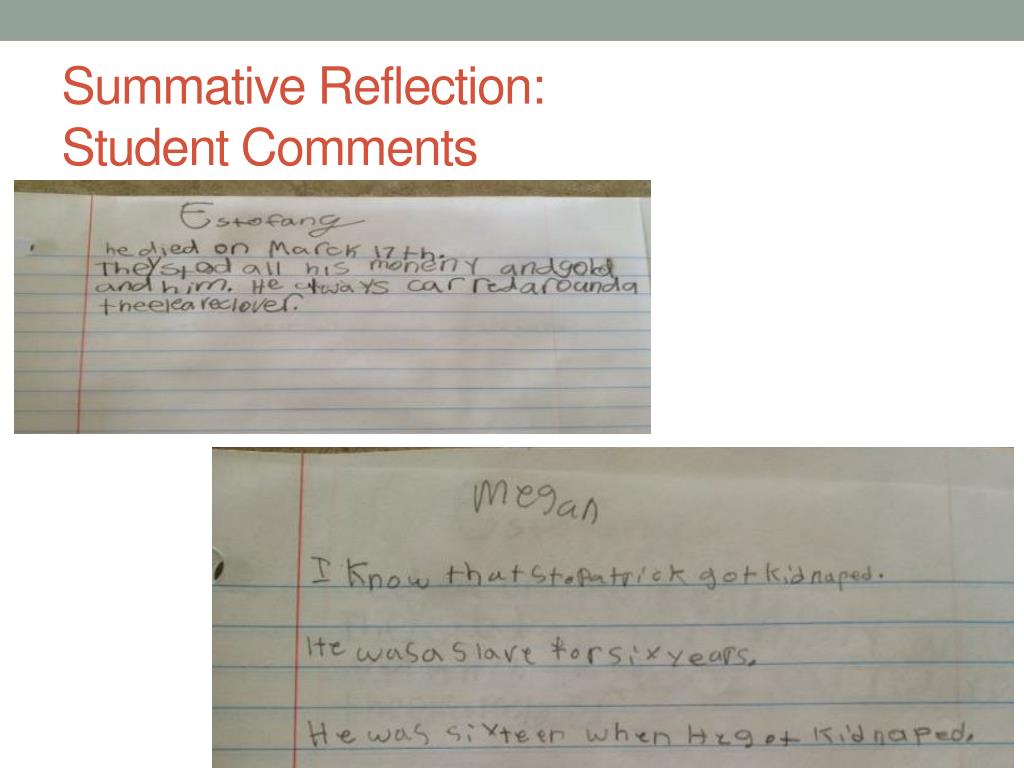 Summative Reflection:
Student Comments
Estofang
he died on March 17th.
They stod all his moneny andgold
and him. He always carredarounda
threeleareclover.
Megan
I Know that St.Patrick got kidnaped.
He wasa slave for six years.
He was sixteen when He got kidnaped.